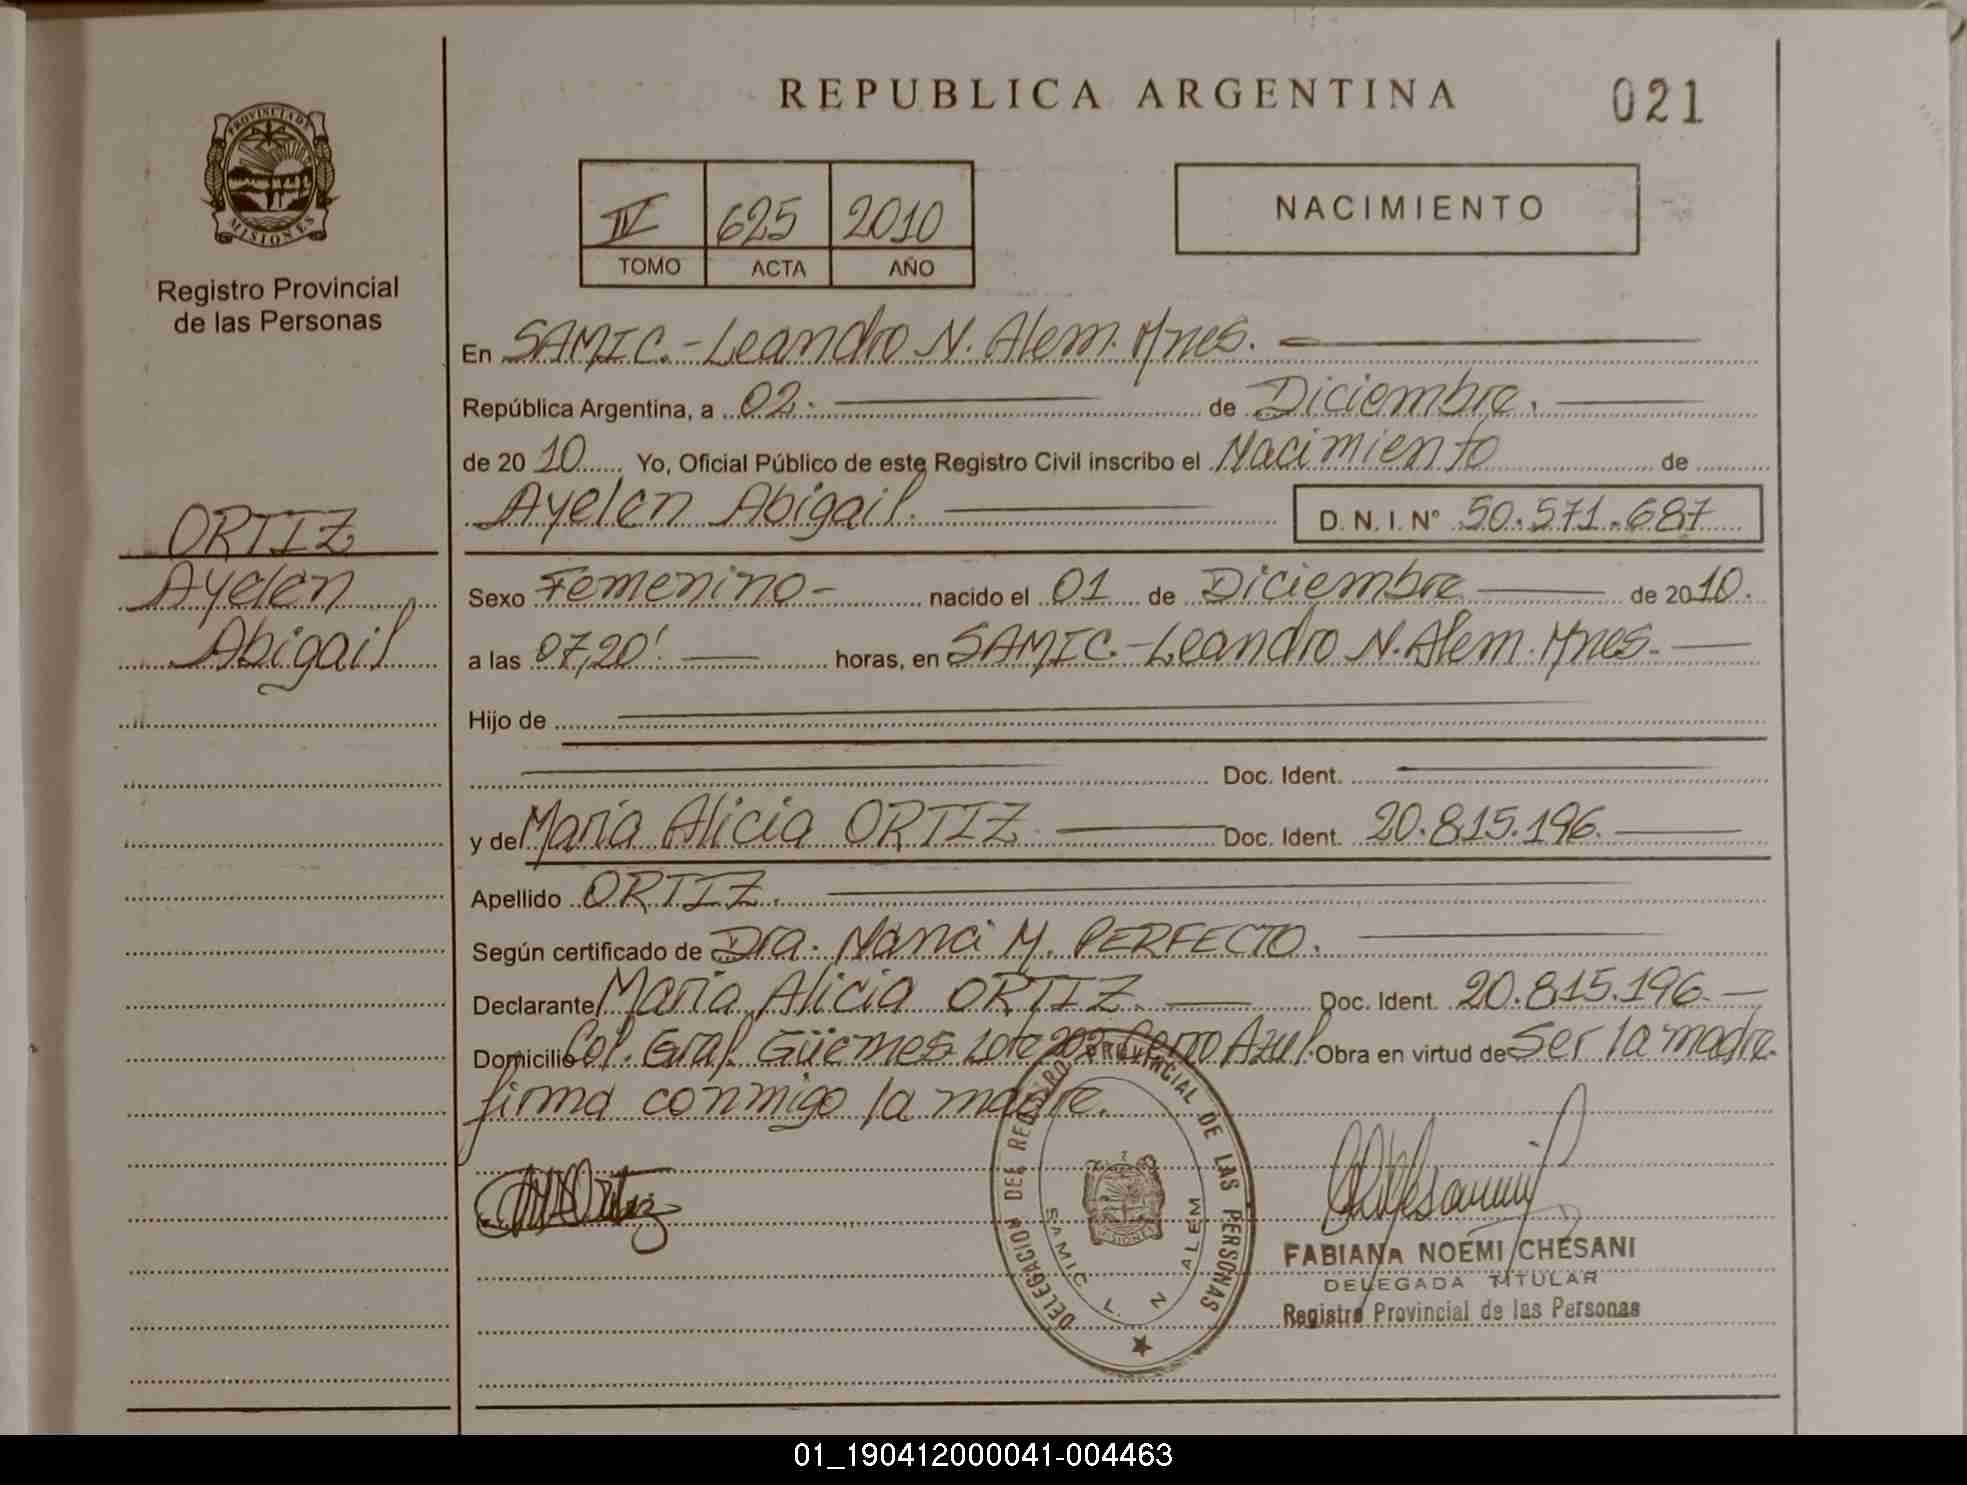 REPUBLICA ARGENTINA
021
PROVINCIA DE
MISIONES
Registro Provincial
de las Personas
IV 625 2010
TOMO ACTA AÑO
NACIMIENTO
En SAMIC.-Leandro N. Alem. Mnes.
República Argentina, a 02. de Diciembre.
de 2010 Yo, Oficial Público de este Registro Civil inscribo el Nacimiento de
Ayelen Abigail. D. N. I. N° 50.571.687
ORTIZ
Ayelen
Abigail
Sexo Femenino- nacido el 01 de Diciembre de 2010.
a las 07,20' horas, en SAMIC.-Leandro N. Alem. Mnes.-
Hijo de
Doc. Ident.
y de Maria Alicia ORTIZ Doc. Ident. 20.815.196.
Apellido ORTIZ.
Según certificado de Dra. Nanci M. PERFECTO.
Declarante Maria Alicia ORTIZ. Doc. Ident. 20.815.196.-
Domicilio Col. Gral. Güemes Lote 202 Cerro Azul. Obra en virtud de Ser la madre.
firma conmigo la madre.
DELEGACION DEL REGISTRO PROVINCIAL DE LAS PERSONAS
SAMIC L. N ALEM
MISIONES
FABIANA NOEMI CHESANI
DELEGADA TITULAR
Registro Provincial de las Personas
01_190412000041-004463